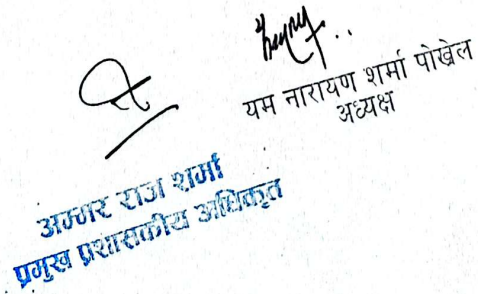 यम नारायण शर्मा पोखेल
अध्यक्ष
अम्मर राज शर्मा
प्रमुख प्रशासकीय अधिकृत